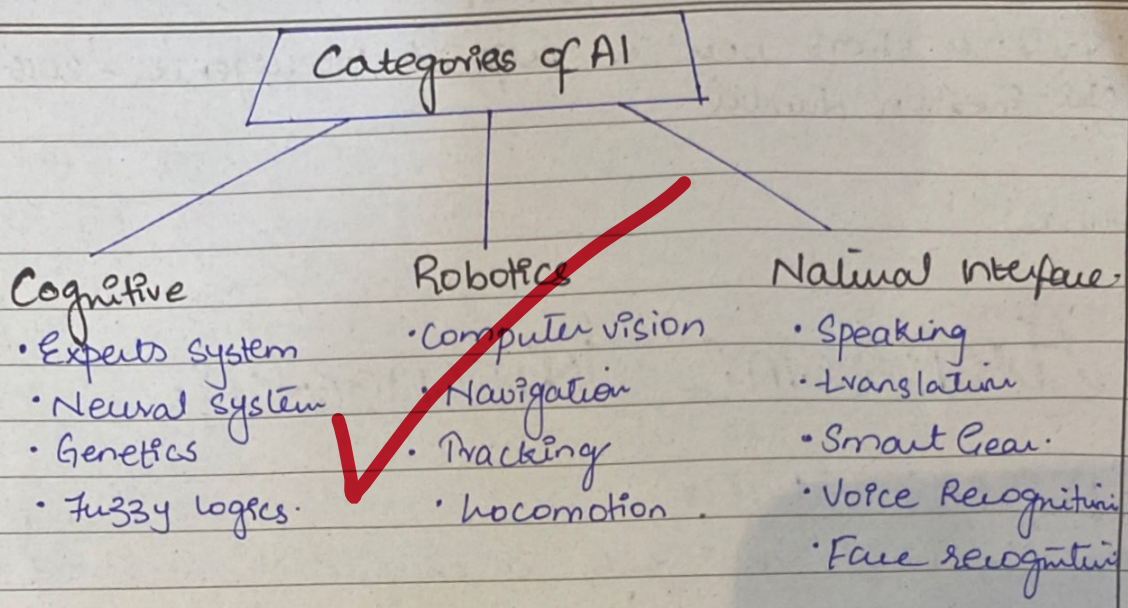 Categories of AI
Cognitive
• Experts system
• Neural system
• Genetics
• Fuzzy logics.
Robotics
• Computer vision
• Navigation
• Tracking
• Locomotion .
Natural interface.
• Speaking
• translation
• Smart Gear.
• Voice Recognition
• Face recognition